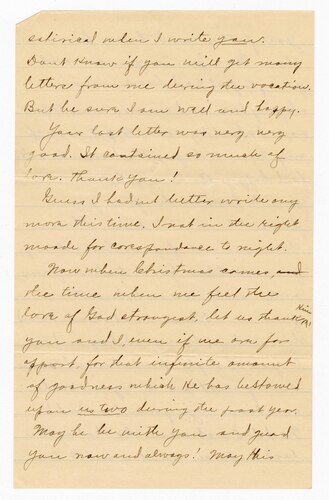 satirical when I write you.
Dont know if you will get many
letters from me during the vacation.
But be sure I am well and happy.
Your last letter was very very
good. It contained so much of
love. Thank you!
Guess I hadnt better write any
more this time. I not in the right
moode for correspondance to night.
Now when Christmas comes, and
the time when we feel the
love of God strongest, let us thank Him
you and I, even if we are far
appart, for that infinite amount
of goodness which He has bestowed
upon us two during the past year.
May he be with you and guard
you now and always! May this